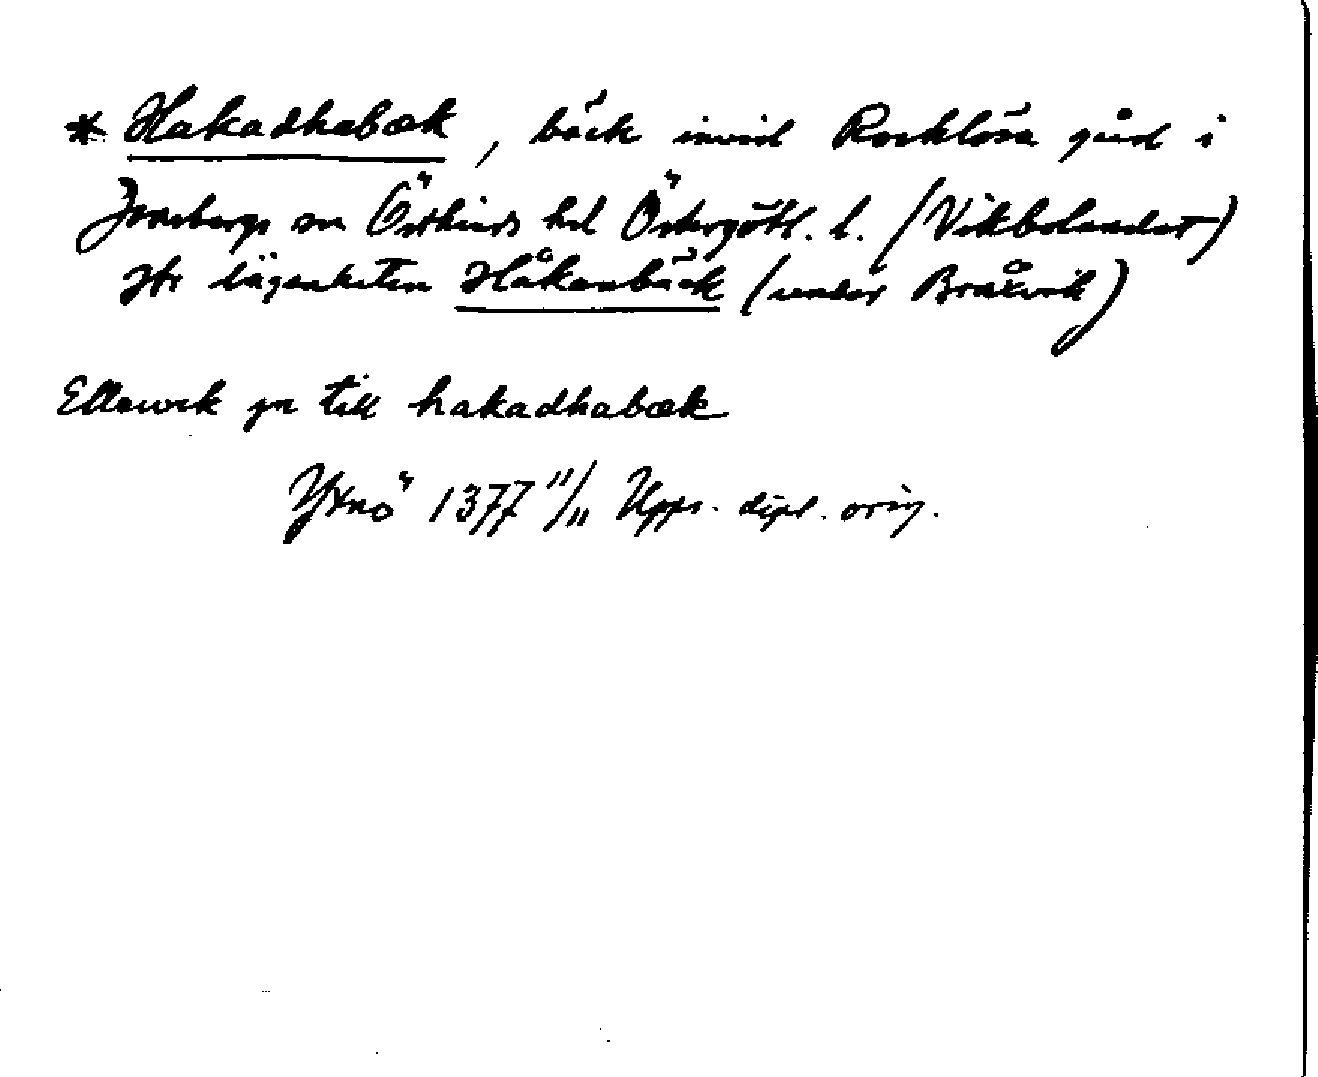 * Hakadhabæk, bäck invid Rocklösa gård i
Jonsbergs sn Östkinds hd Östergötl. l. (Vikbolandet)
Jfr lägenheten Håkanbäck (under Bråxvik)
Ellewik yn till hakadhabæk
Yxnö 1377 11/11 Upps. dipl. orig.